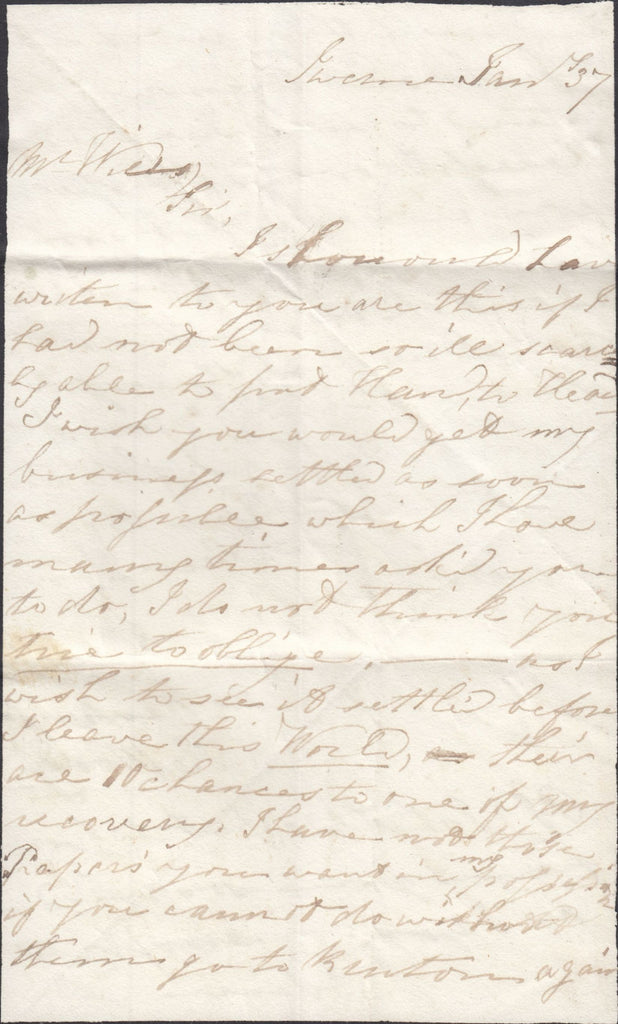 Iwerne Jany 37
Mr Wield
Sir,
I should hav
writen to you are this if I
had not been so ill scarc=
ly able to put Hand, to Head
I wish you would get my
business settled as soon
as possible which I have
many times ask'd you
to do, I do not think you
trie to oblige, ——— as I
wish to see it settled before
I leave this World, their
are 10 chances to one of my
recovery. I have not those
Papers you want in my possession
if you cannot do without
them go to again